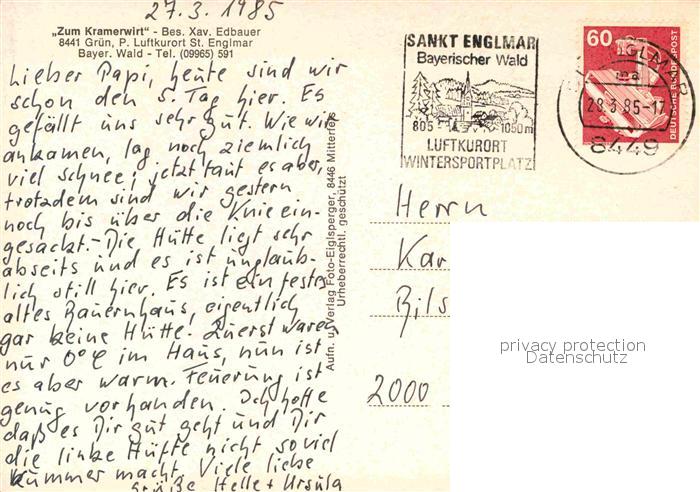 27.3.1985
„Zum Kramerwirt" - Bes. Xav. Edbauer
8441 Grün, P. Luftkurort St. Englmar
Bayer. Wald - Tel. (09965) 591
Lieber Papi, heute sind wir
schon den 5. Tag hier. Es
gefällt uns sehr gut. Wie wir
ankamen, lag noch ziemlich
viel Schnee; jetzt taut es aber,
trotzdem sind wir gestern
noch bis über die Knie ein-
gesackt. - Die Hütte liegt sehr
abseits und es ist unglaub-
lich still hier. Es ist ein festes
altes Bauernhaus, eigentlich
gar keine Hütte. Zuerst waren
nur 0°C im Haus, nun ist
es aber warm. Feuerung ist
genug vorhanden. Ich hoffe
daß es Dir gut geht und Dir
die linke Hüfte nicht so viel
Kummer macht. Viele liebe
Grüße Helle + Ursula
Aufn. u. Verlag Foto-Eiglsperger, 8446 Mitterfels
Urheberrechtl. geschützt
SANKT ENGLMAR
Bayerischer Wald
805 1050m
LUFTKURORT
WINTERSPORTPLATZ
60
DEUTSCHE BUNDESPOST
ENGLMAR
28.3.85-17
8449
Herrn
Kar
Bils
2000
privacy protection
Datenschutz